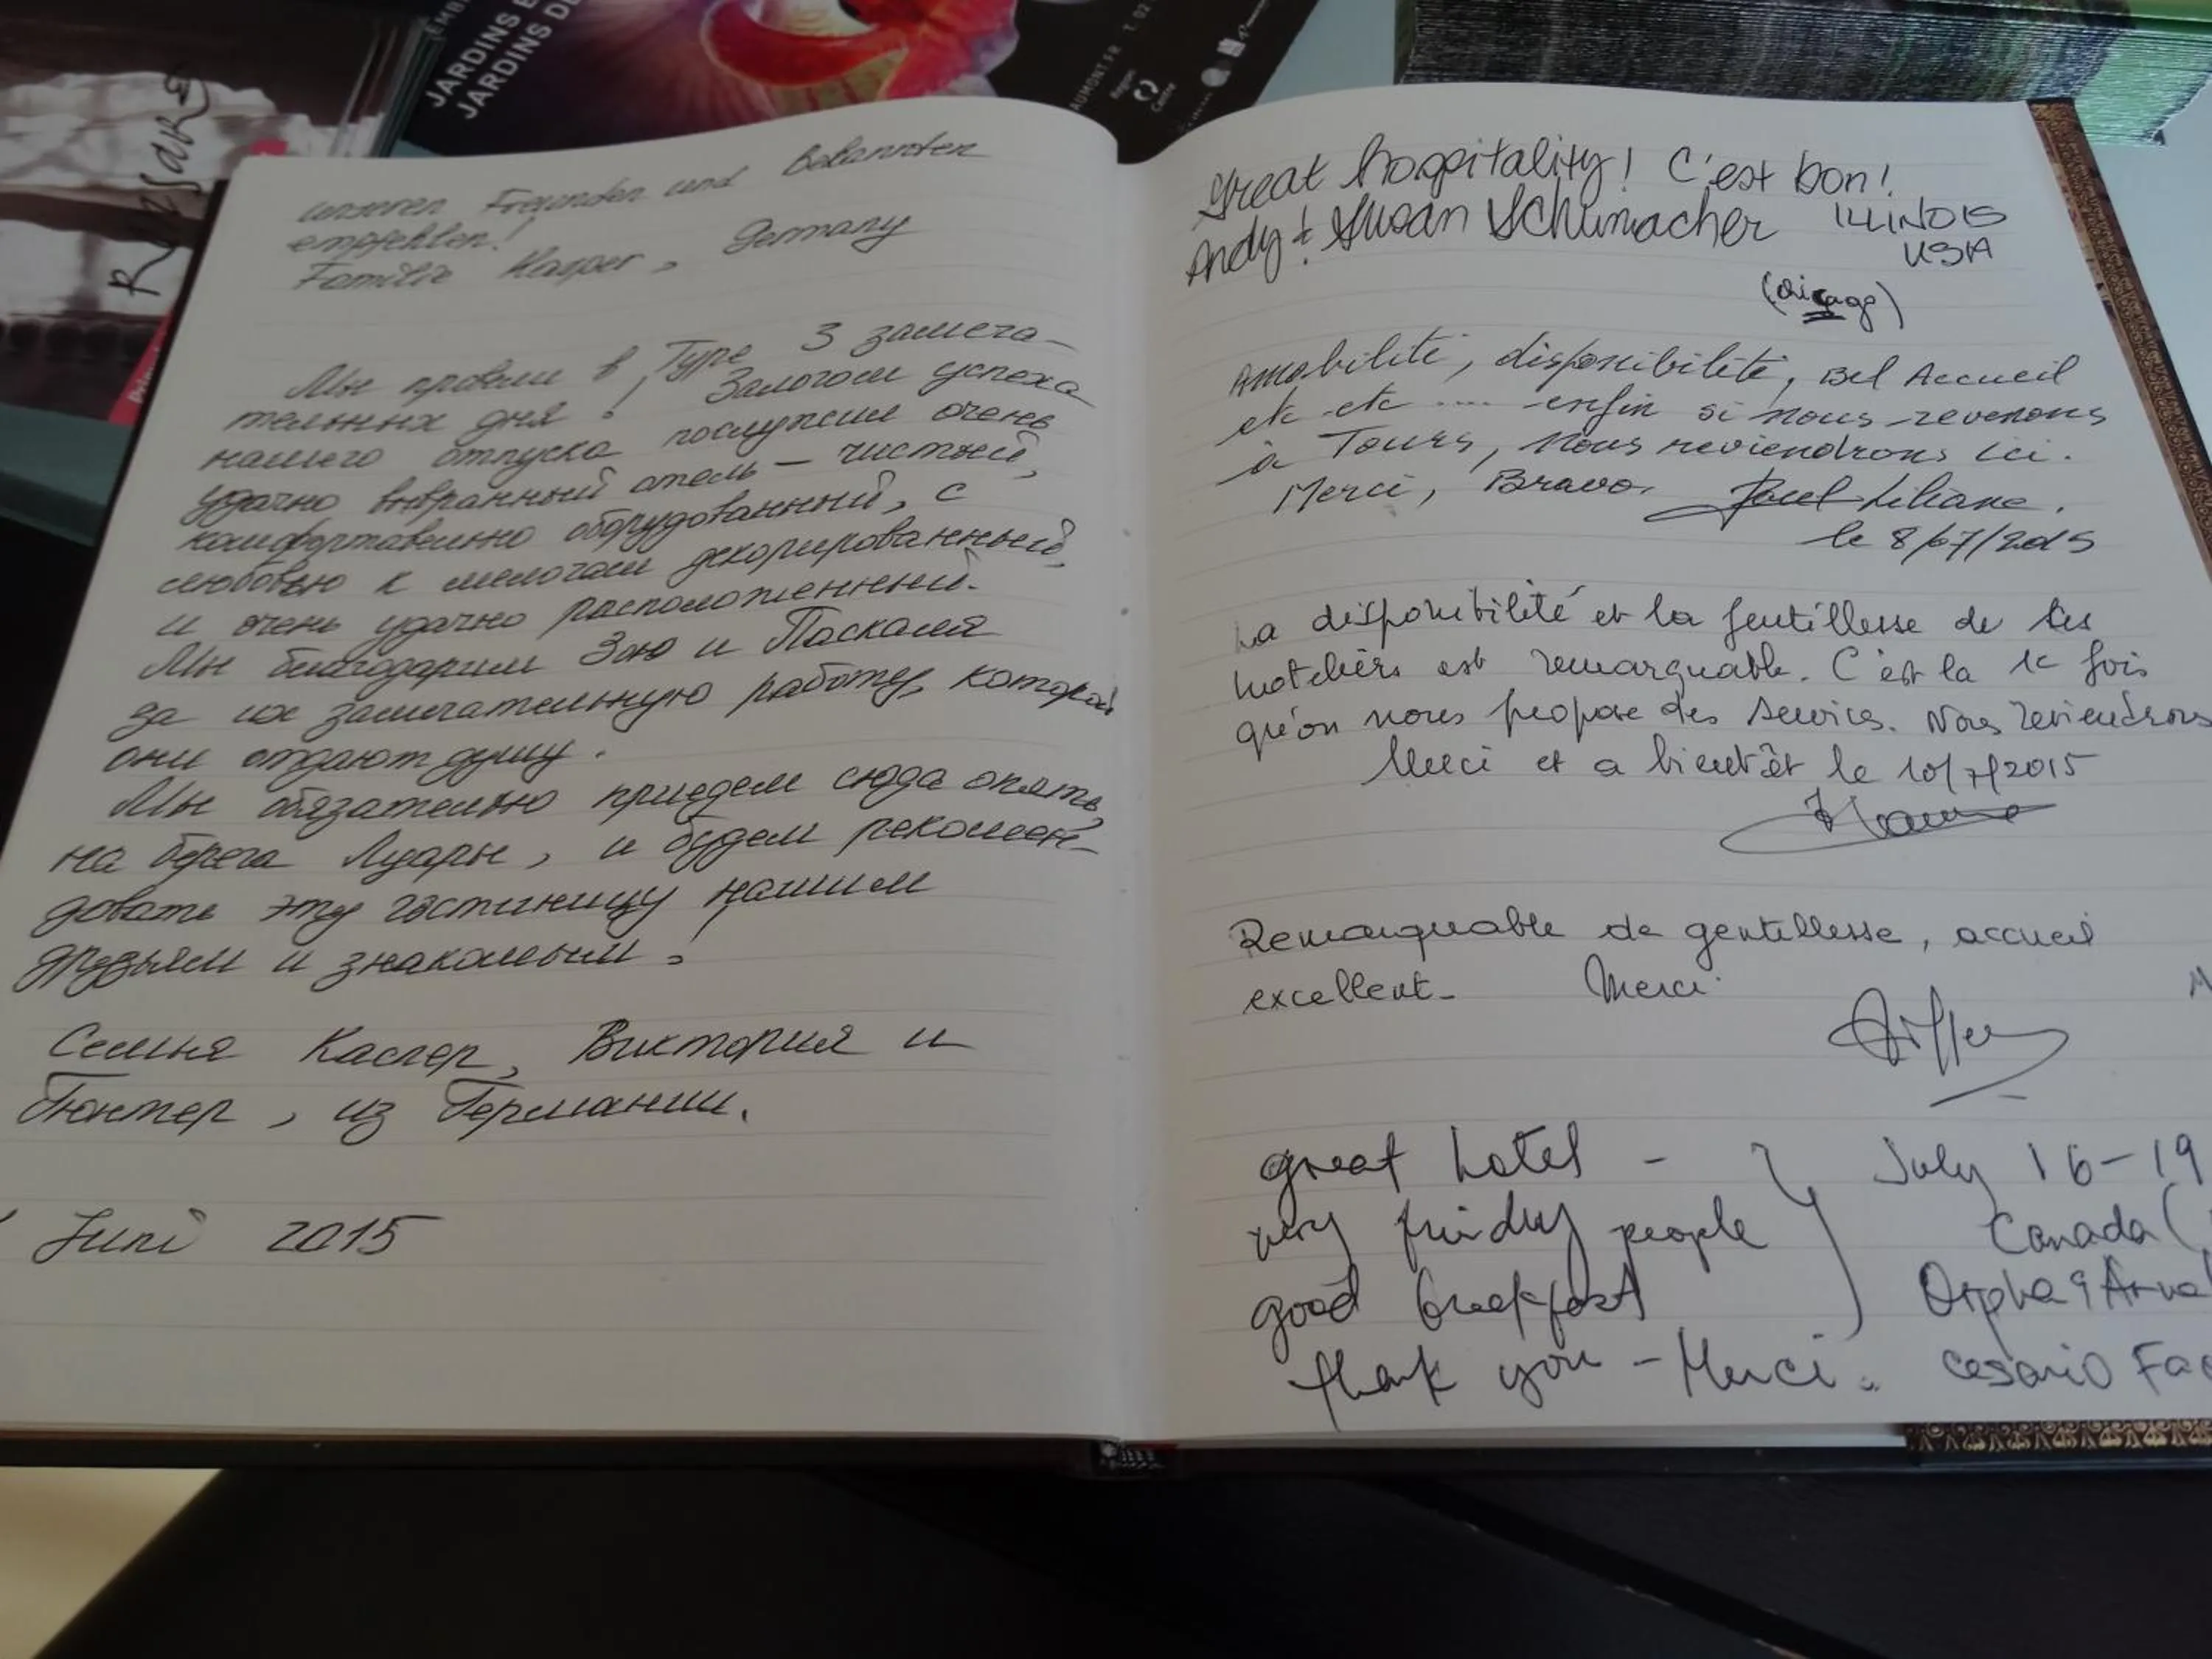 JARDINS
JARDINS DE
Région
Centre
unseren Freunden und Bekannten
empfehlen!
Familie Kasper, Germany
Мы провели в Туре 3 замеча-
тельных дня! Залогом успеха
нашего отпуска послужил очень
удачно выбранный отель – чистый,
комфортабельно оборудованный, с
любовью к мелочам декорированный
и очень удачно расположенный.
Мы благодарим Зою и Паскаля
за их замечательную работу, которой
они отдают душу.
Мы обязательно приедем сюда опять,
на берега Луары, и будем рекомен-
довать эту гостиницу нашим
друзьям и знакомым!
Семья Каспер, Виктория и
Гюнтер, из Германии.
Juni 2015
Great hospitality! C'est bon!
Andy & Susan Schumacher ILLINOIS
USA
(Chicago)
Amabilité, disponibilité, Bel Accueil
etc etc .... enfin si nous revenons
à Tours, nous reviendrons ici.
Merci, Bravo. Liliane.
le 8/07/2015
La disponibilité et la gentillesse de les
hoteliers est remarquable. C'est la 1e fois
qu'on nous propose des services. Nous reviendrons
Merci et a bientôt le 10/7/2015
Remarquable de gentillesse, accueil
excellent. Merci
great hotel - July 16-19
very friendly people Canada (
good breakfast Orpha &
thank you - Merci. Cesario